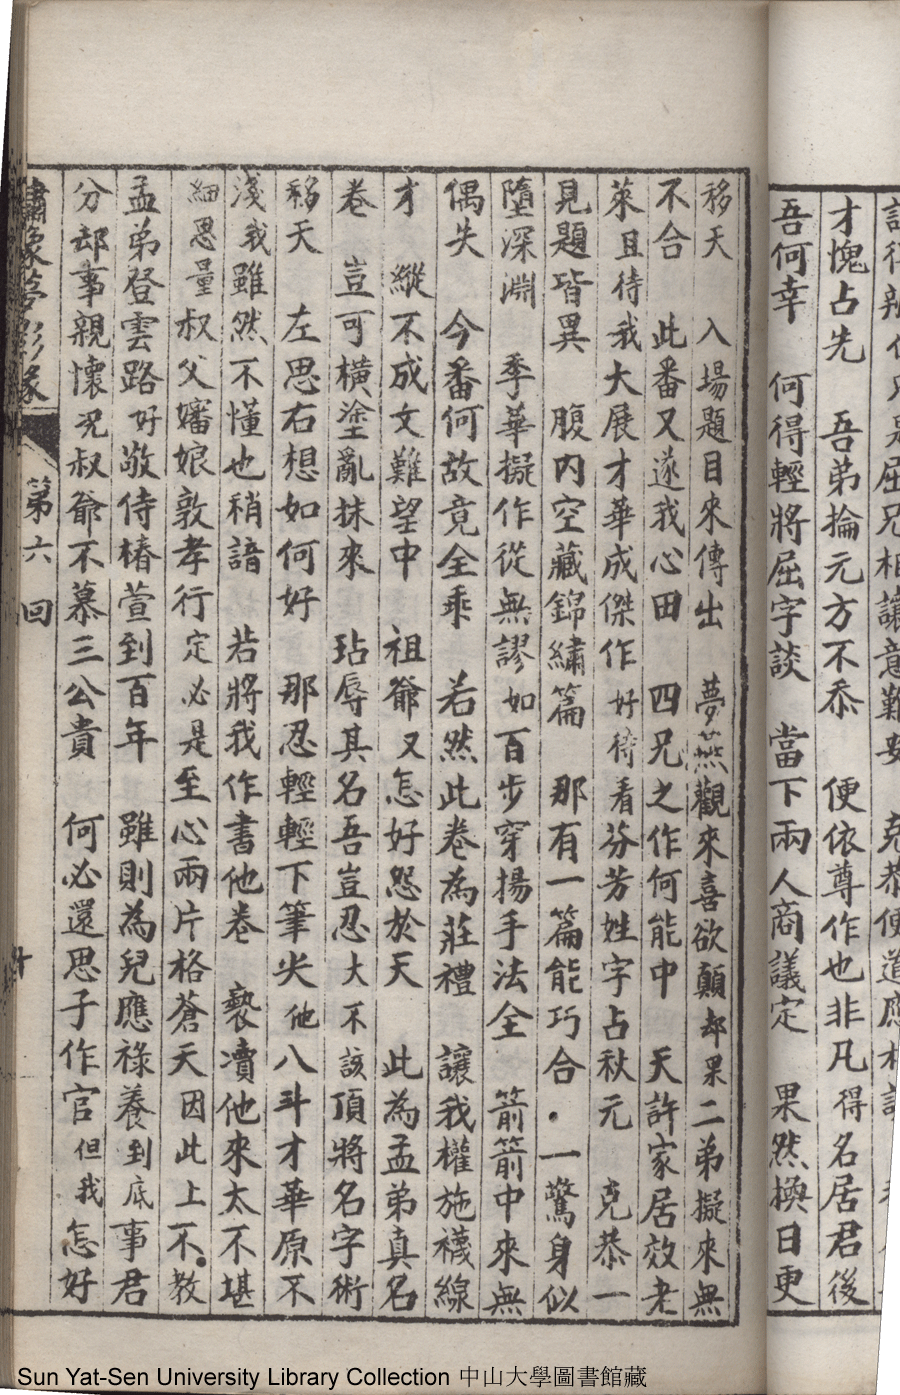 才愧占先　吾弟掄元方不忝　便依尊作也非凡得名居君後
吾何幸　何得輕將屈字談　當下兩人商議定　果然換日更
移天　入場題目來傳出　夢燕觀來喜欲顛却果二弟擬來無
不合　此番又遂我心田　四兄之作何能中　天許家居效老
萊且待我大展才華成傑作好待看芬芳姓字占秋元　克恭一
見題皆異　腹内空藏錦繡篇　那有一篇能巧合．一驚身似
墮深淵　季華擬作從無謬如百步穿揚手法全　箭箭中來無
偶失　今番何故竟全乖　若然此卷為莊禮　讓我權施襪線
才　縱不成文難望中　祖爺又怎好怨於天　此為孟弟真名
卷　豈可橫塗亂抹來　玷辱其名吾豈忍大不該頂將名字術
移天　左思右想如何好　那忍輕輕下筆尖他八斗才華原不
淺我雖然不懂也稍諳　若將我作書他卷　褻瀆他來太不堪
細思量叔父嬸娘敦孝行定必是至心兩片格蒼天因此上不教
孟弟登雲路好敬侍椿萱到百年　雖則為兒應祿養到底事君
分却事親懷況叔爺不慕三公貴　何必還思子作官但我怎好
繡像夢影緣　第六回
Sun Yat-Sen University Library Collection 中山大學圖書館藏